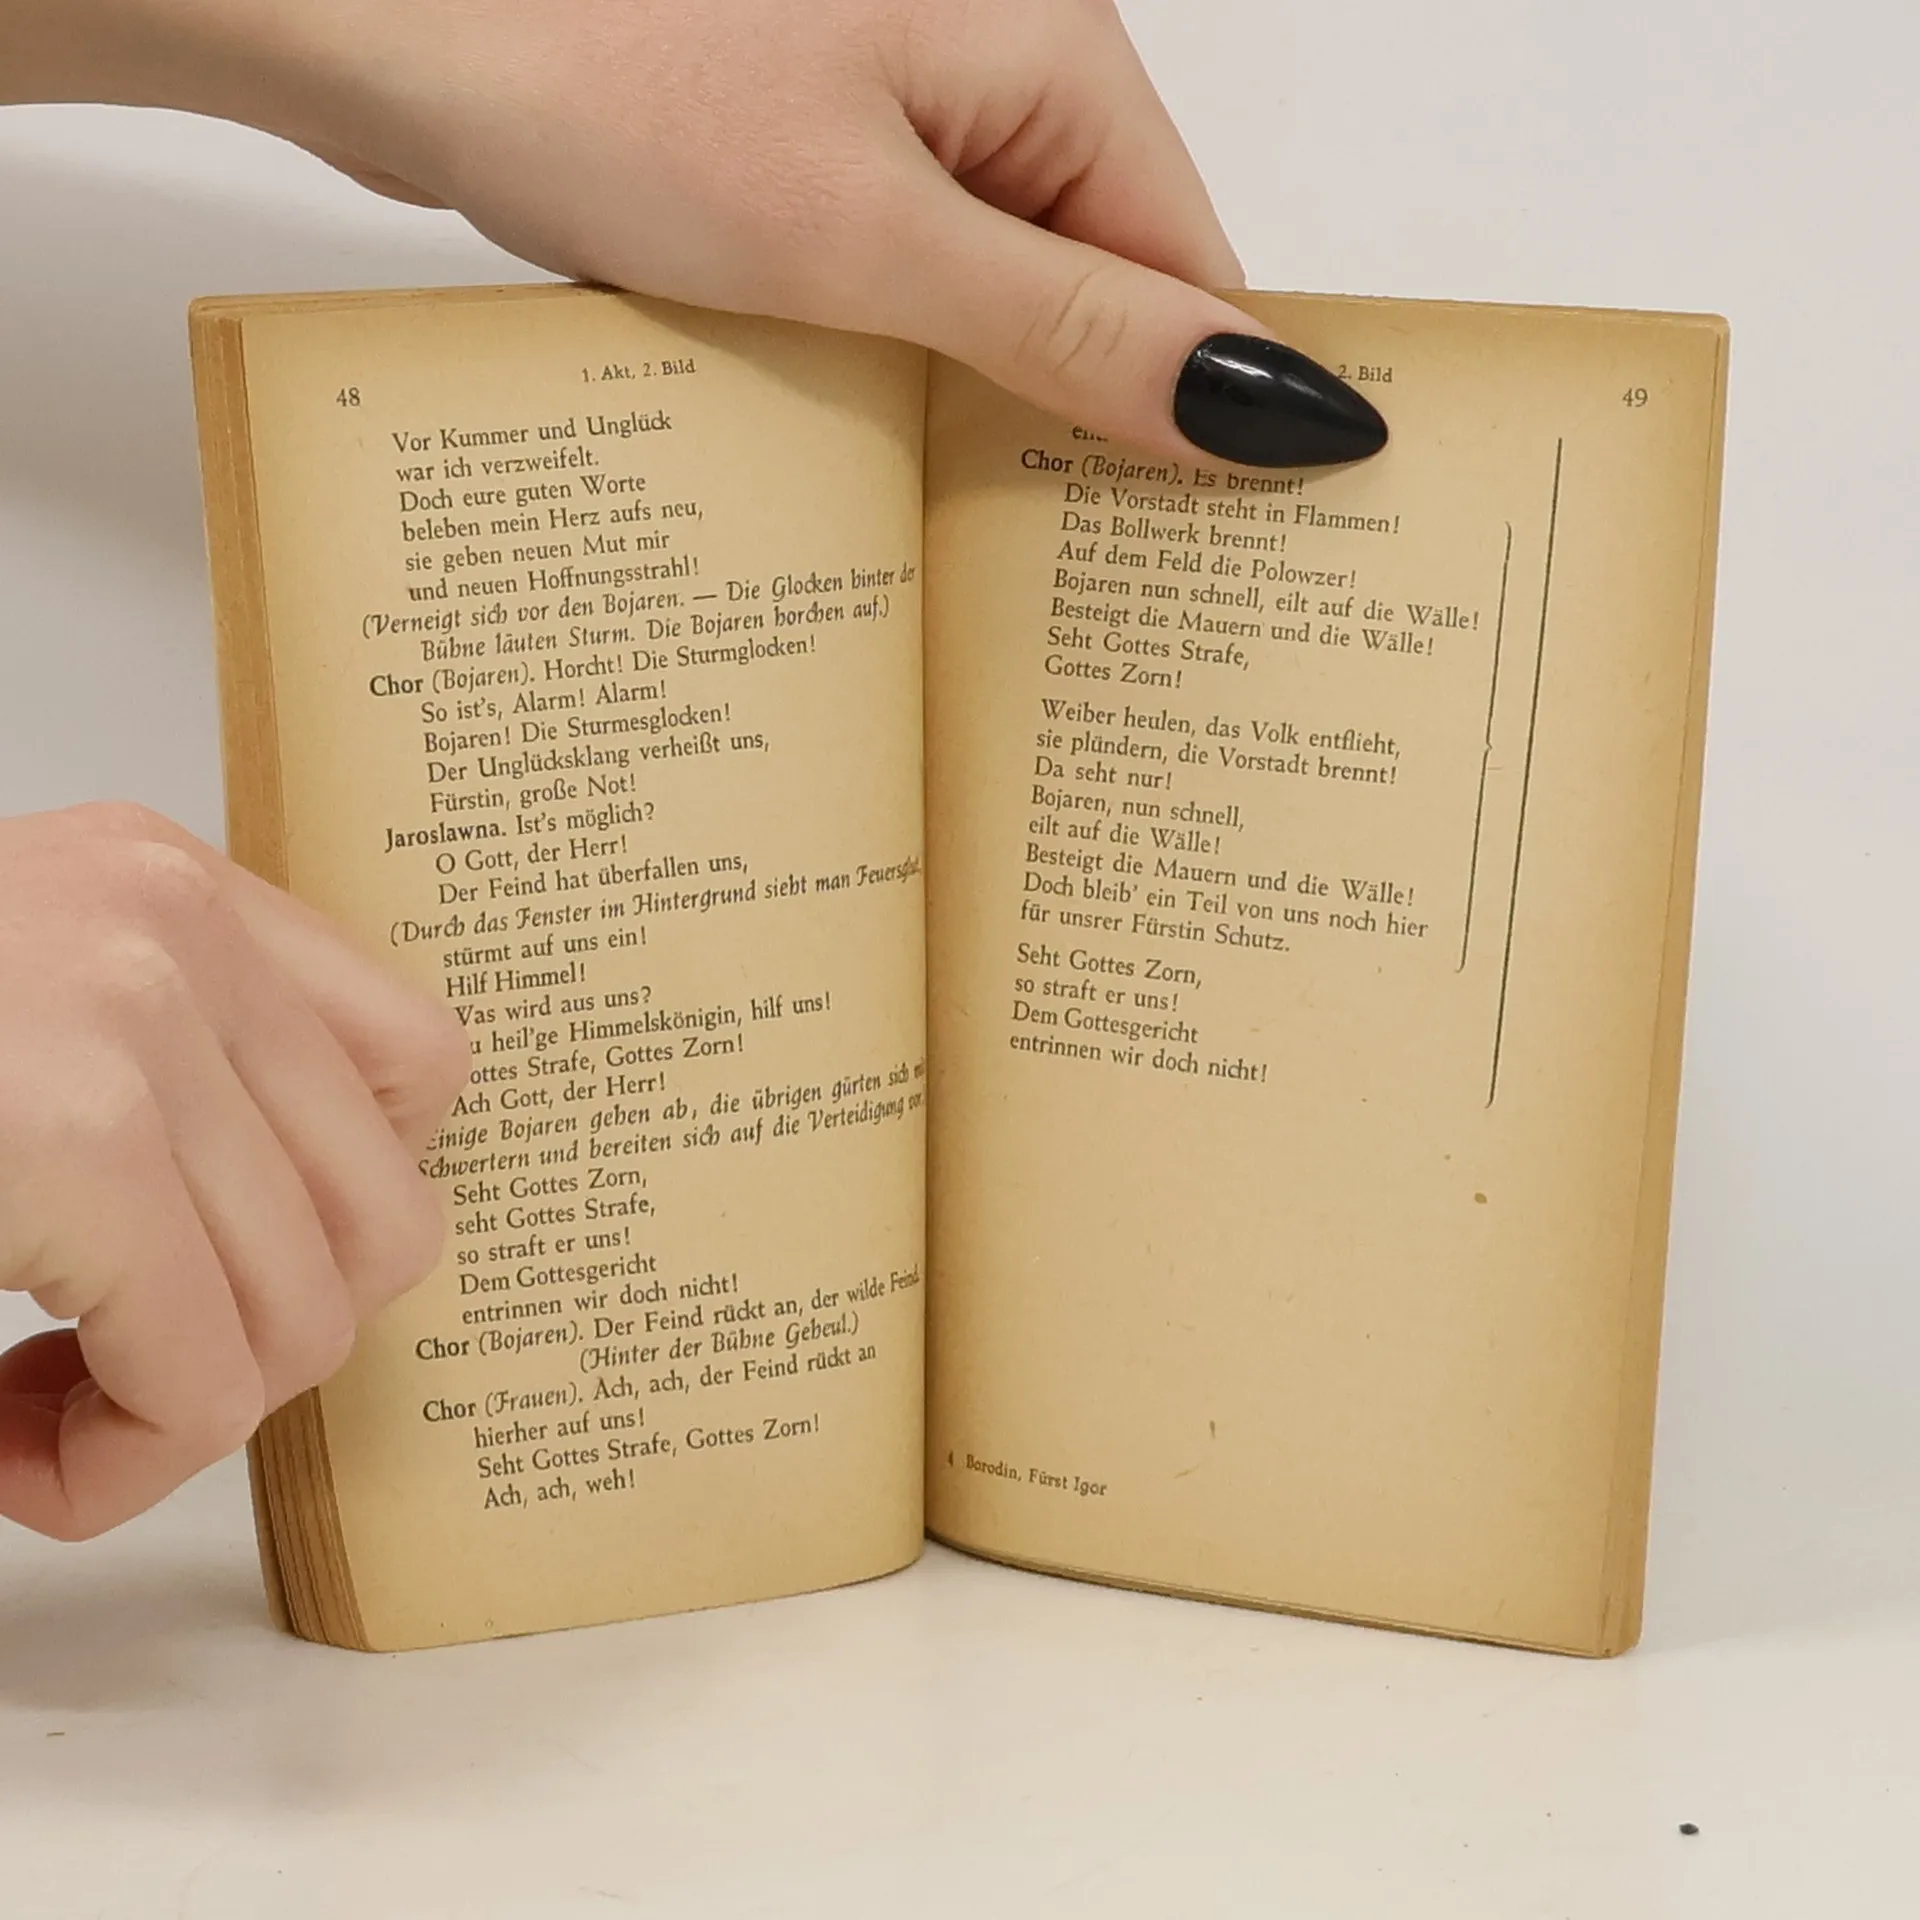 48
1. Akt, 2. Bild
Vor Kummer und Unglück
war ich verzweifelt.
Doch eure guten Worte
beleben mein Herz aufs neu,
sie geben neuen Mut mir
und neuen Hoffnungsstrahl!
(Verneigt sich vor den Bojaren. — Die Glocken hinter der
Bühne läuten Sturm. Die Bojaren horchen auf.)
Chor (Bojaren). Horcht! Die Sturmglocken!
So ist's, Alarm! Alarm!
Bojaren! Die Sturmesglocken!
Der Unglücksklang verheißt uns,
Fürstin, große Not!
Jaroslawna. Ist's möglich?
O Gott, der Herr!
Der Feind hat überfallen uns,
(Durch das Fenster im Hintergrund sieht man
stürmt auf uns ein!
Hilf Himmel!
wird aus uns?
heil'ge Himmelskönigin, hilf uns!
Strafe, Gottes Zorn!
Ach Gott, der Herr!
Bojaren gehen ab, die übrigen gürten sich
Schwertern und bereiten sich auf die Verteidigung
Seht Gottes Zorn,
seht Gottes Strafe,
so straft er uns!
Dem Gottesgericht
entrinnen wir doch nicht!
Chor (Bojaren). Der Feind rückt an, der wilde Feind
(Hinter der Bühne Geheul.)
Chor (Frauen). Ach, ach, der Feind rückt an
hierher auf uns!
Seht Gottes Strafe, Gottes Zorn!
Ach, ach, weh!
2. Bild
49
Chor (Bojaren). Es brennt!
Die Vorstadt steht in Flammen!
Das Bollwerk brennt!
Auf dem Feld die Polowzer!
Bojaren nun schnell, eilt auf die Wälle!
Besteigt die Mauern und die Wälle!
Seht Gottes Strafe,
Gottes Zorn!
Weiber heulen, das Volk entflieht,
sie plündern, die Vorstadt brennt!
Da seht nur!
Bojaren, nun schnell,
eilt auf die Wälle!
Besteigt die Mauern und die Wälle!
Doch bleib' ein Teil von uns noch hier
für unsrer Fürstin Schutz.
Seht Gottes Zorn,
so straft er uns!
Dem Gottesgericht
entrinnen wir doch nicht!
4 Borodin, Fürst Igor